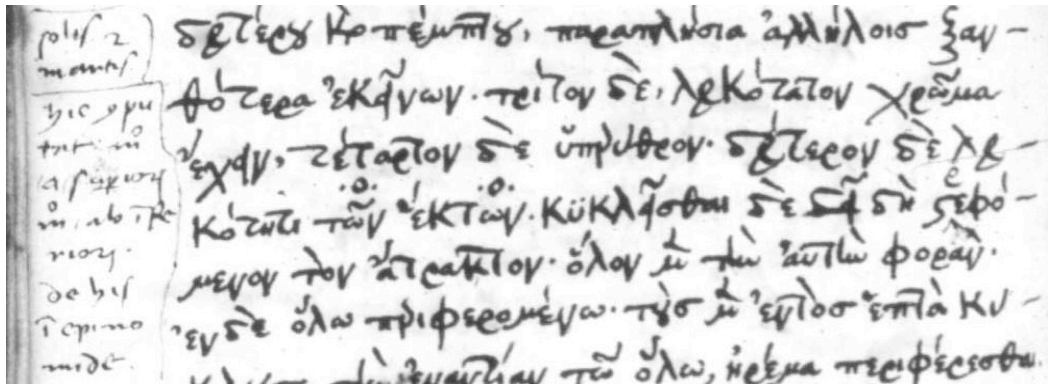 δευτέρου καὶ πέμπτου, παραπλήσια ἀλλήλοισ ξαν-
θότερα ἐκείνων. τρίτον δὲ, λευκότατον χρῶμα
ἔχειν, τέταρτον δὲ ὑπέρυθρον. δεύτερον δὲ λευ-
κότητι τῶν ἑκτῶν. κϋκλεῖσθαι δὲ δὴ στρεφό-
μενον τὸν ἄτρακτον. ὅλον μὲν τὴν αὐτὴν φορὰν.
ἐν δὲ ὅλω περιφερομένω. τοὺσ μὲν ἐντὸσ ἑπτὰ κυ-
κλους τὴν ἐναντίαν τῶ ὅλω, ἠρέμα περιφέρεσθαι
solis
hic
de his
ī epino
mide.